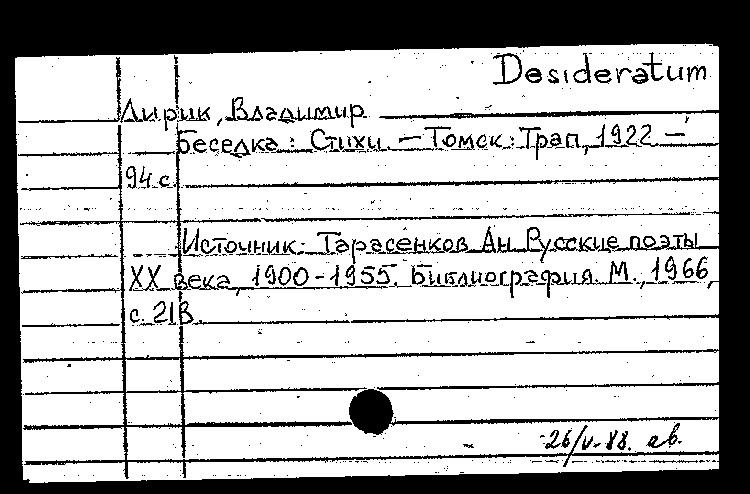 Desideratum
Лирик, Владимир
Беседка: Стихи. — Томск: Трап, 1922 —
94 с.
Источник: Тарасенков Ан. Русские поэты
XX века, 1900-1955. Библиография. М., 1966,
с. 218.
26/V-88. ав.